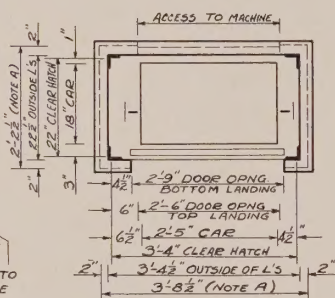 ACCESS TO MACHINE
2'-2½" (NOTE A)
2"
22½" OUTSIDE L'S
2"
22" CLEAR HATCH
1"
18" CAR
3"
4½" 2'-9" DOOR OPNG.
BOTTOM LANDING
6" 2'-6" DOOR OPNG
TOP LANDING
6½" 2'-5" CAR 4½"
3'-4" CLEAR HATCH
2" 3'-4½" OUTSIDE OF L'S 2"
3'-8½" (NOTE A)
TO